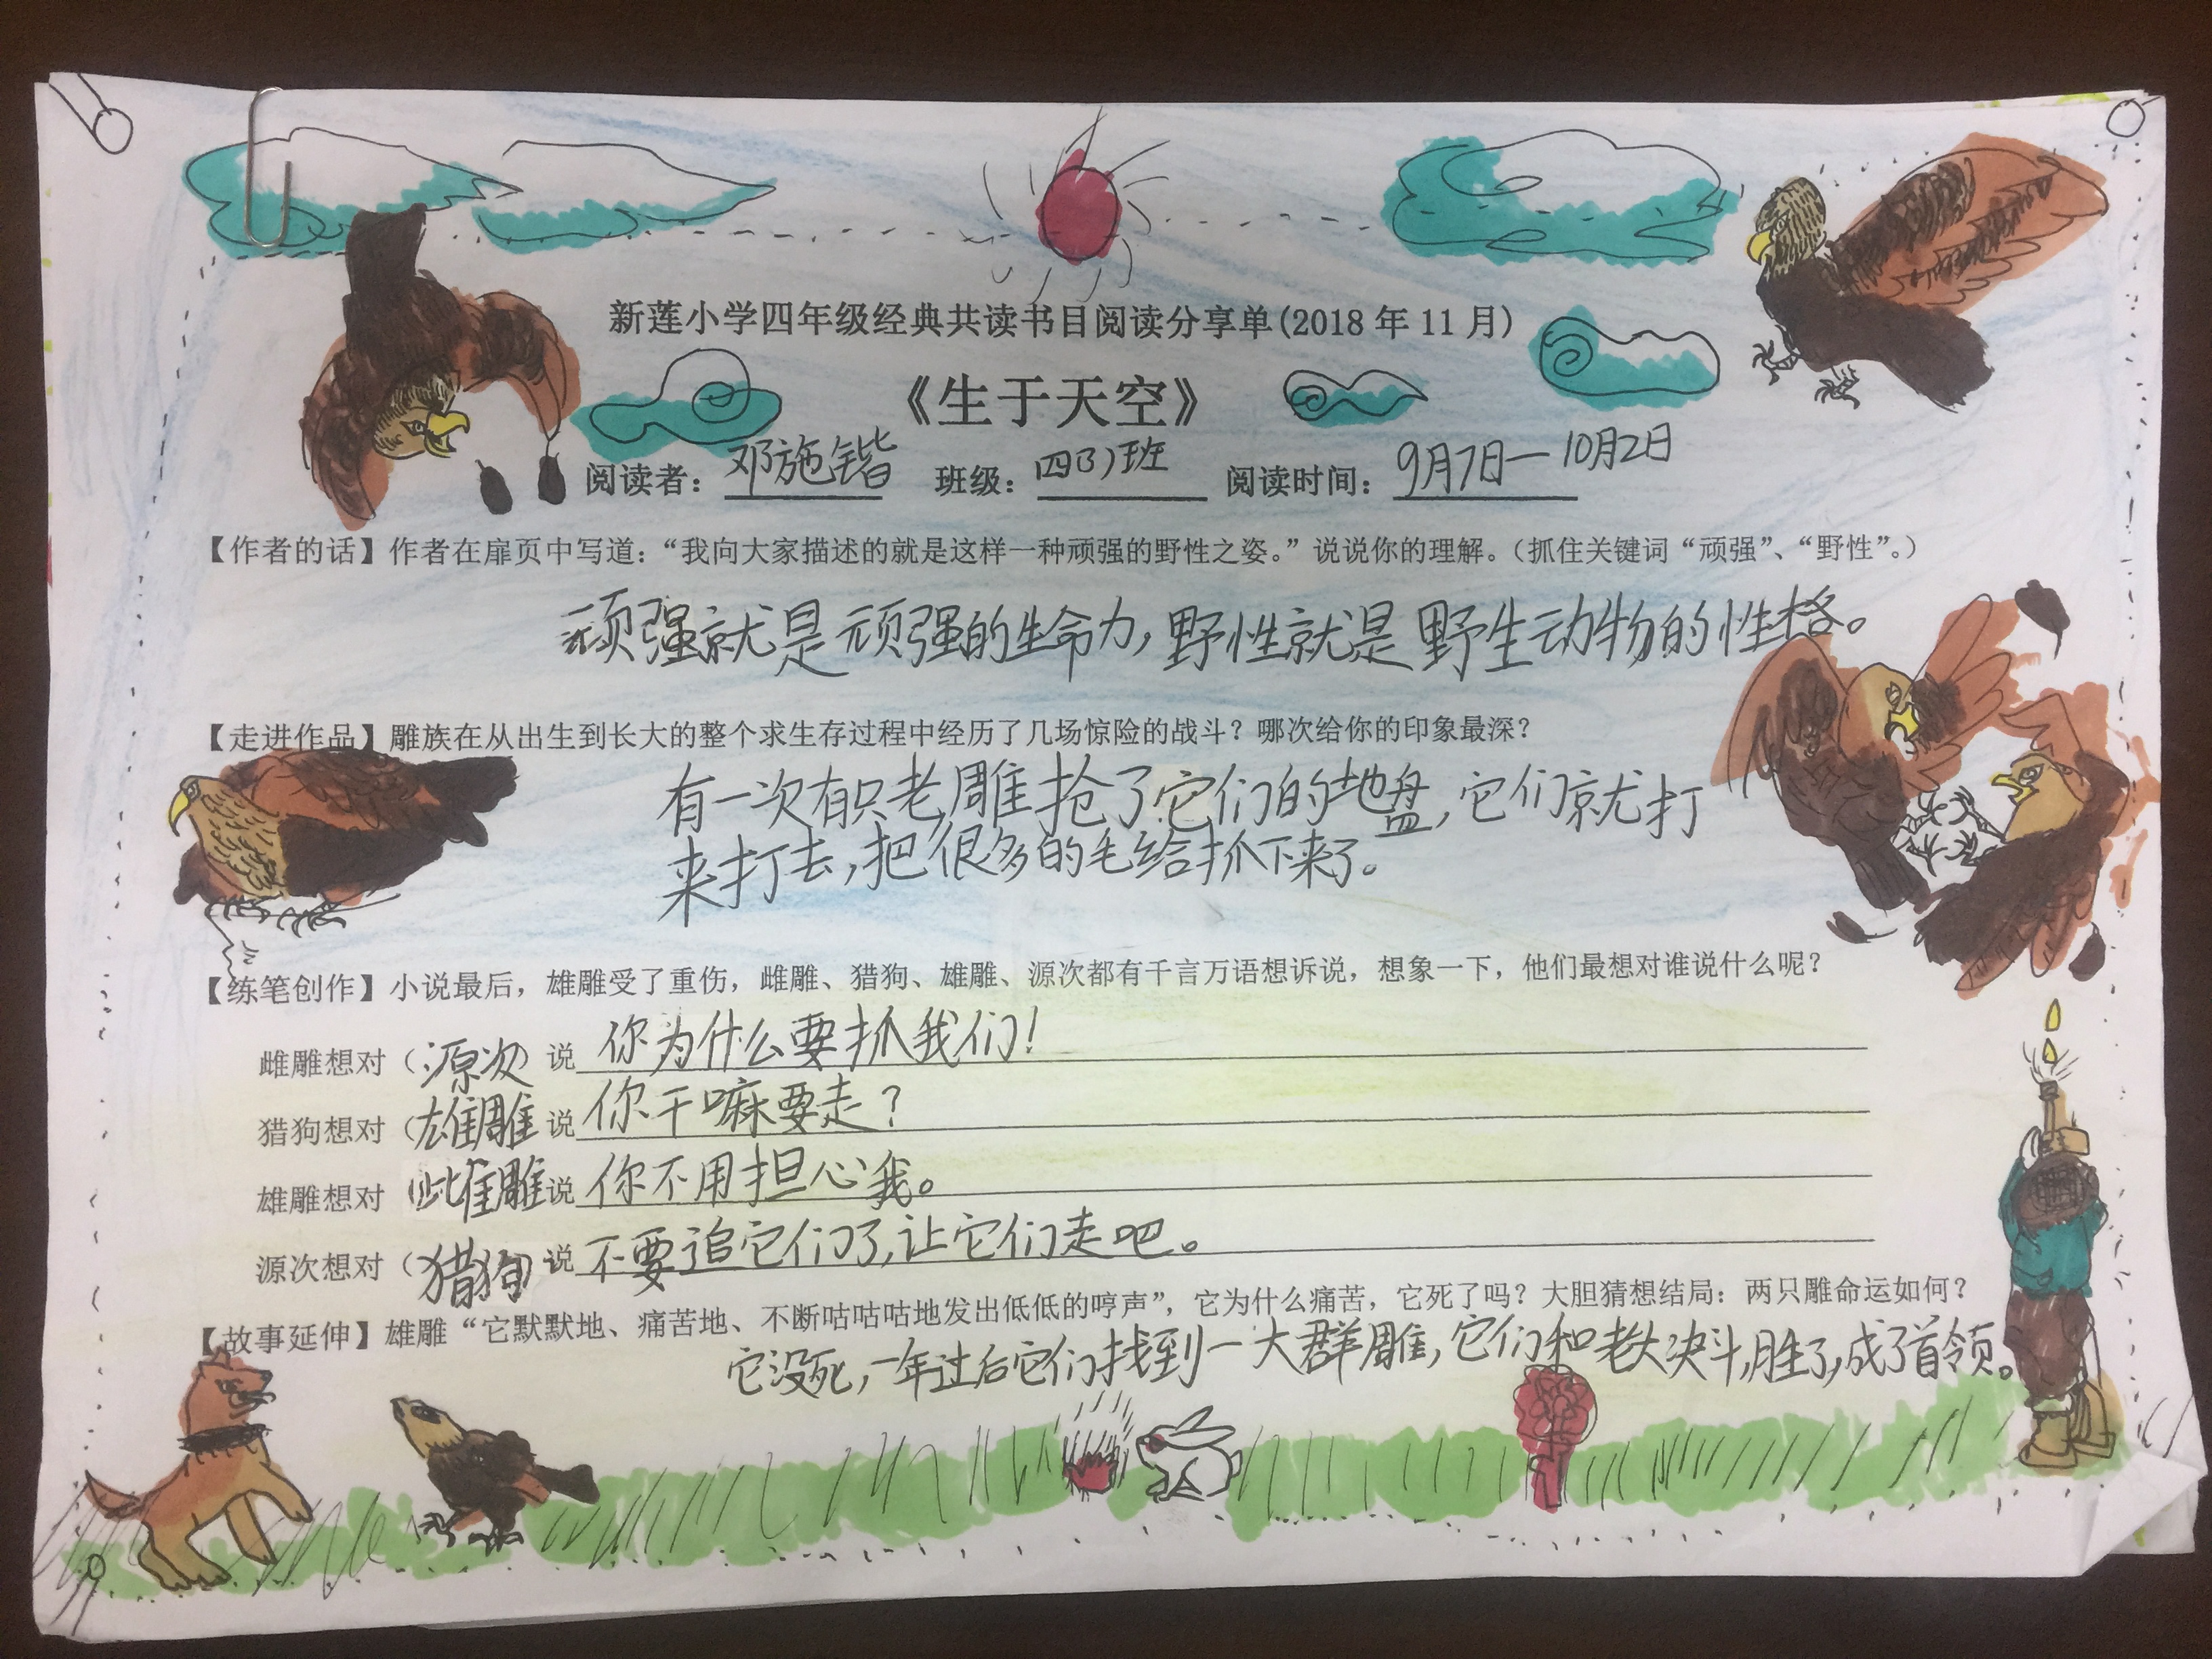 新莲小学四年级经典共读书目阅读分享单(2018 年 11 月)
《生于天空》
阅读者：邓施锴 班级：四(3)班 阅读时间：9月7日—10月2日
【作者的话】作者在扉页中写道：“我向大家描述的就是这样一种顽强的野性之姿。”说说你的理解。（抓住关键词“顽强”、“野性”。）
顽强就是顽强的生命力，野性就是野生动物的性格。
【走进作品】雕族在从出生到长大的整个求生存过程中经历了几场惊险的战斗？哪次给你的印象最深？
有一次有只老雕抢了它们的地盘，它们就打
来打去，把很多的毛给抓下来了。
【练笔创作】小说最后，雄雕受了重伤，雌雕、猎狗、雄雕、源次都有千言万语想诉说，想象一下，他们最想对谁说什么呢？
雌雕想对（源次）说 你为什么要抓我们！
猎狗想对（雄雕 说 你干嘛要走？
雄雕想对（雌雕 说 你不用担心我。
源次想对（猎狗）说 不要追它们了，让它们走吧。
【故事延伸】雄雕“它默默地、痛苦地、不断咕咕咕地发出低低的哼声”，它为什么痛苦，它死了吗？大胆猜想结局：两只雕命运如何？
它没死，一年过后它们找到一大群雕，它们和老大决斗，胜了，成了首领。